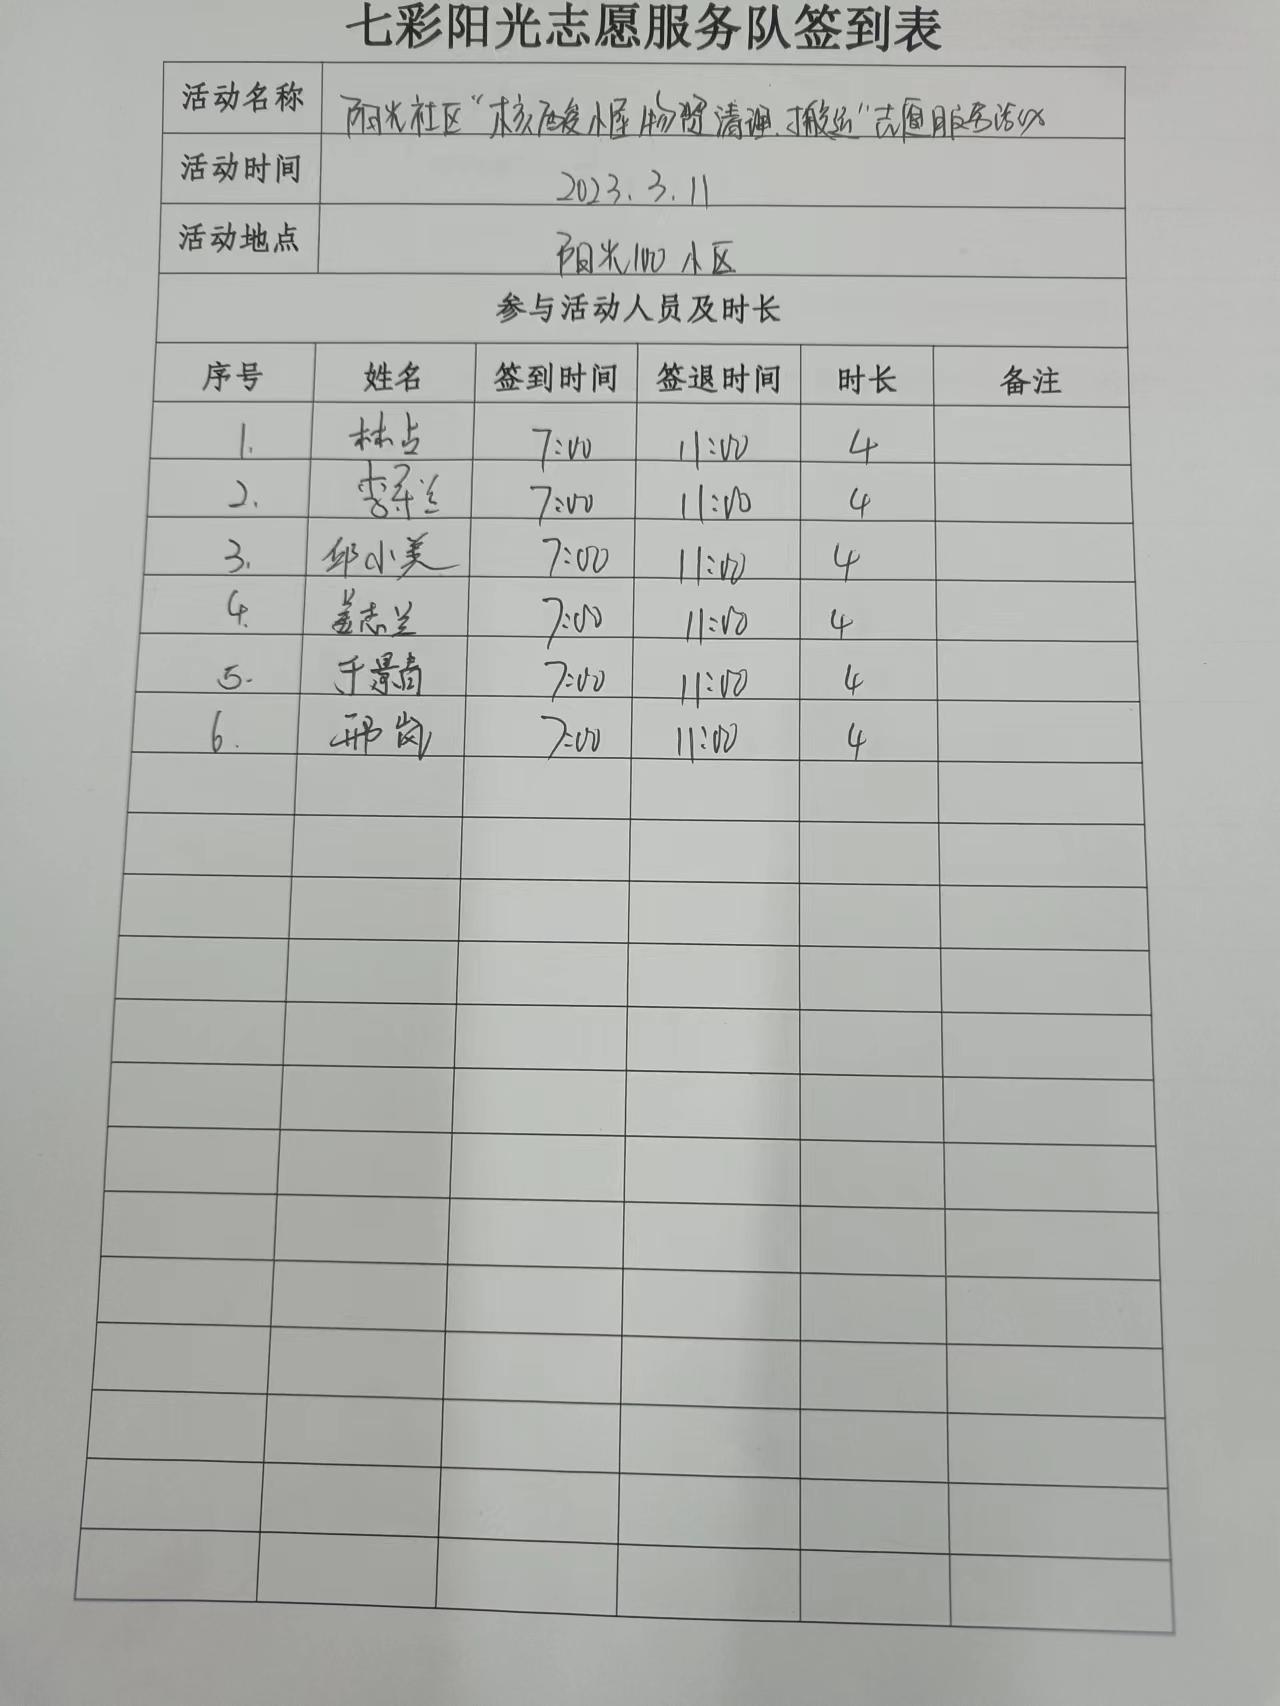 七彩阳光志愿服务队签到表
活动名称 阳光社区“核酸小屋物资清理、搬运”志愿服务活动
活动时间 2023.3.11
活动地点 阳光100小区
参与活动人员及时长
序号 姓名 签到时间 签退时间 时长 备注
1. 林占 7:00 11:00 4
2. 李 兰 7:00 11:00 4
3. 邱小美 7:00 11:00 4
4. 姜志兰 7:00 11:00 4
5. 于景高 7:00 11:00 4
6. 邢岚 7:00 11:00 4